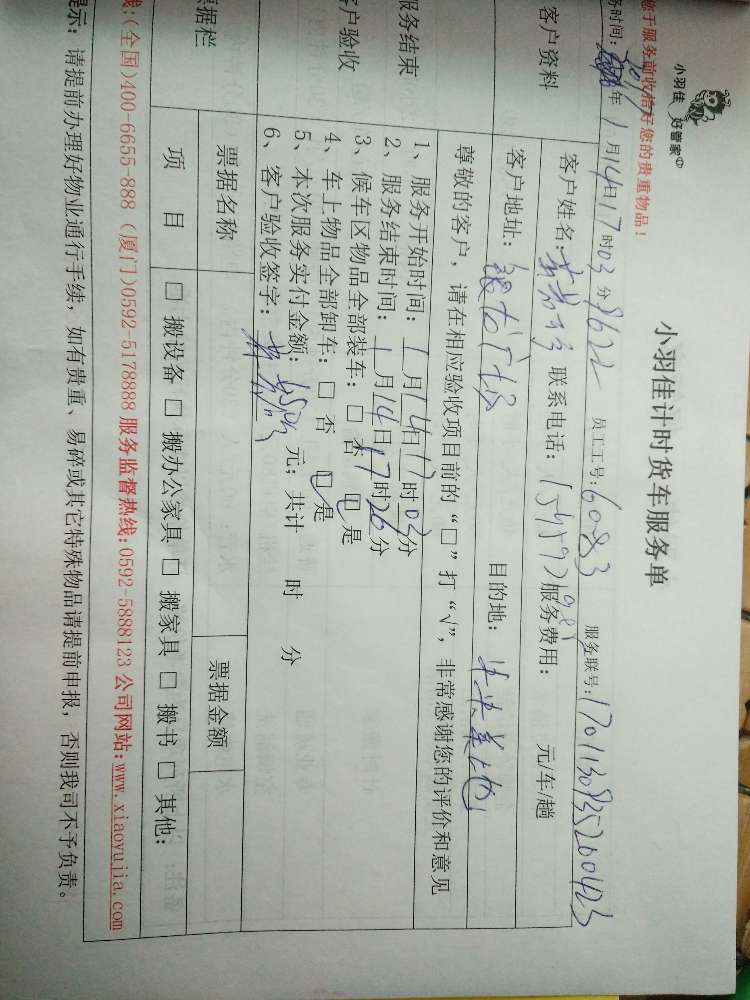 小羽佳 好管家
小羽佳计时货车服务单
您于服务前收拾好您的贵重物品!
务时间: 年 1 月 14 日 17 时 03 分 8622 员工工号: 6083 服务联号: 1701130935200423
客户资料
客户姓名: 联系电话: 服务费用: 元/车/趟
客户地址: 目的地:
尊敬的客户,请在相应验收项目前的“□”打“√”,非常感谢您的评价和意见
服务结束
客户验收
1、服务开始时间: 1 月 14 日 17 时 03 分
2、服务结束时间: 1 月 14 日 17 时 26 分
3、候车区物品全部装车: □ 否 □ 是
4、车上物品全部卸车: □ 否 □ 是
5、本次服务实付金额: 150 元; 共计 时 分
6、客户验收签字:
票据栏
票据名称 票据金额
项 目 □ 搬设备 □ 搬办公家具 □ 搬家具 □ 搬书 □ 其他:
线:(全国)400-6655-888 (厦门)0592-5178888 服务监督热线:0592-5888123 公司网站:www.xiaoyujia.com
提示: 请提前办理好物业通行手续,如有贵重、易碎或其它特殊物品请提前申报,否则我司不予负责。